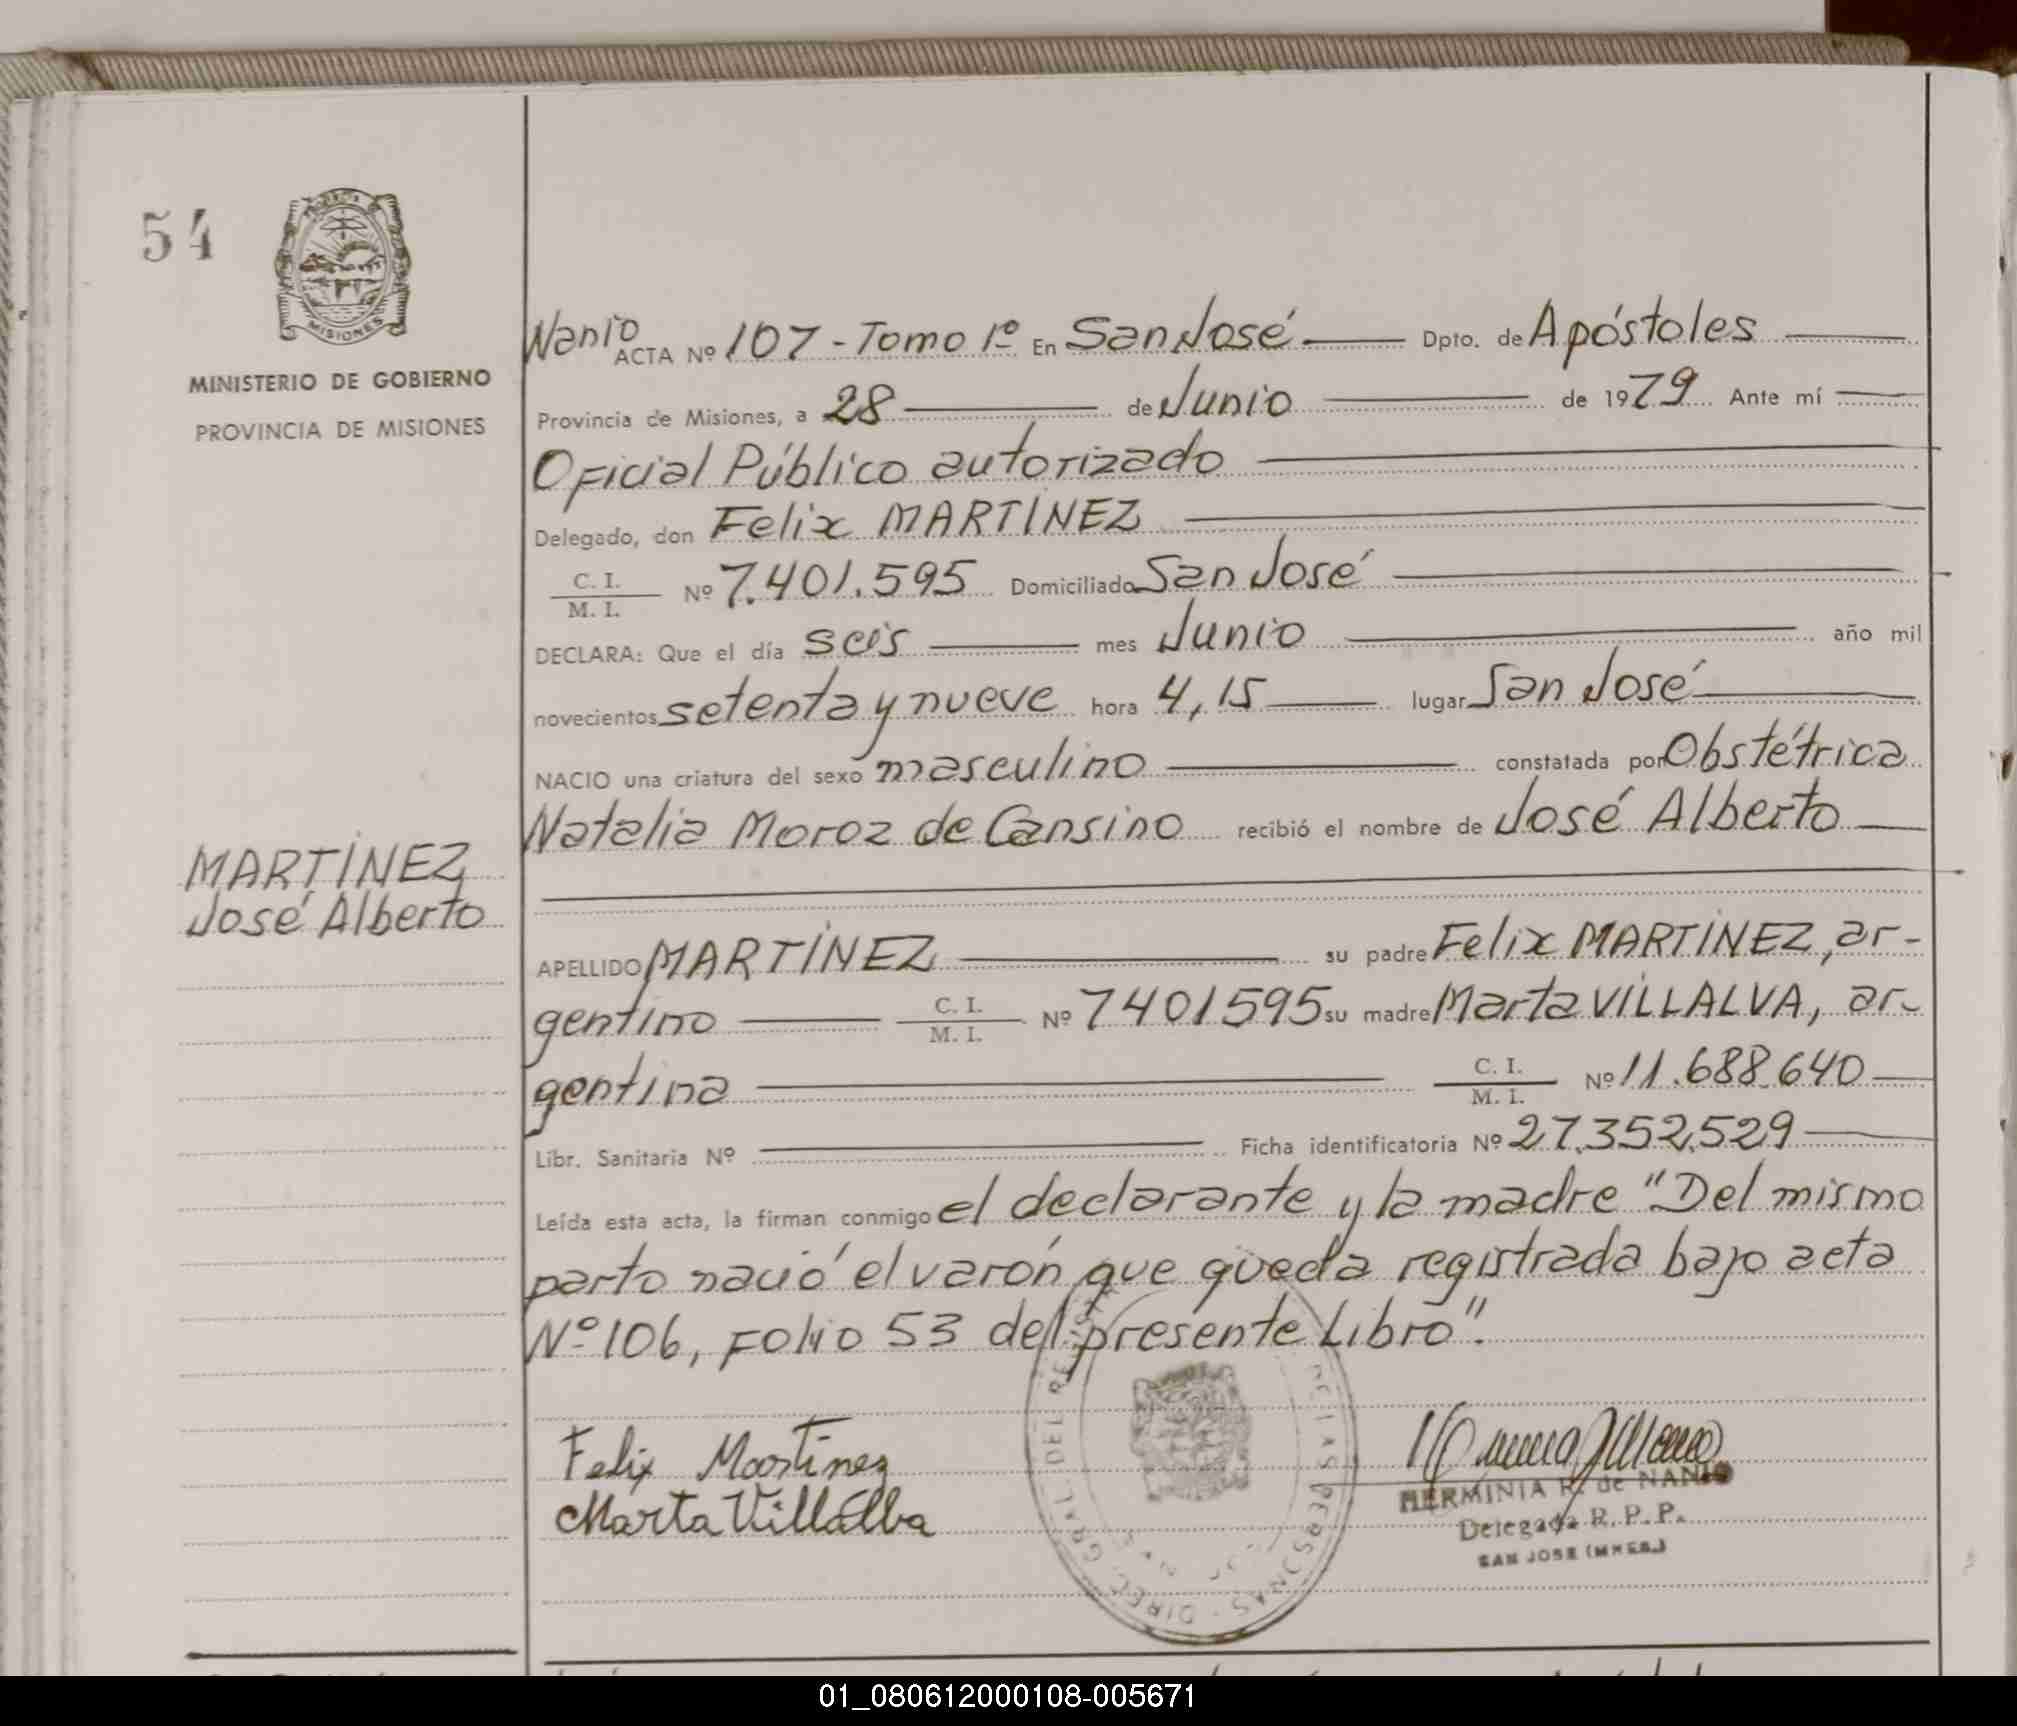 54
MISIONES
MINISTERIO DE GOBIERNO
PROVINCIA DE MISIONES
Nanio ACTA Nº 107 - Tomo 1º En San José Dpto. de Apóstoles
Provincia de Misiones, a 28 de Junio de 1979 Ante mí
Oficial Público autorizado
Delegado, don Felix MARTINEZ
C. I.
M. I. Nº 7.401.595 Domiciliado San José
DECLARA: Que el día seis mes Junio año mil
novecientos setenta y nueve hora 4,15 lugar San José
NACIO una criatura del sexo masculino constatada por Obstétrica
Natalia Moroz de Cansino recibió el nombre de José Alberto
MARTINEZ
José Alberto
APELLIDO MARTINEZ su padre Felix MARTINEZ, ar-
gentino C. I. M. I. Nº 7401595 su madre Marta VILLALVA, ar-
gentina C. I. M. I. Nº 11.688.640
Libr. Sanitaria Nº Ficha identificatoria Nº 27.352.529
Leída esta acta, la firman conmigo el declarante y la madre "Del mismo
parto nació el varón que queda registrada bajo acta
Nº 106, Folio 53 del presente Libro".
Felix Martinez
Marta Villalba
HERMINIA R. de NANIO
Delegada R. P. P.
SAN JOSE (MNES.)
01_080612000108-005671